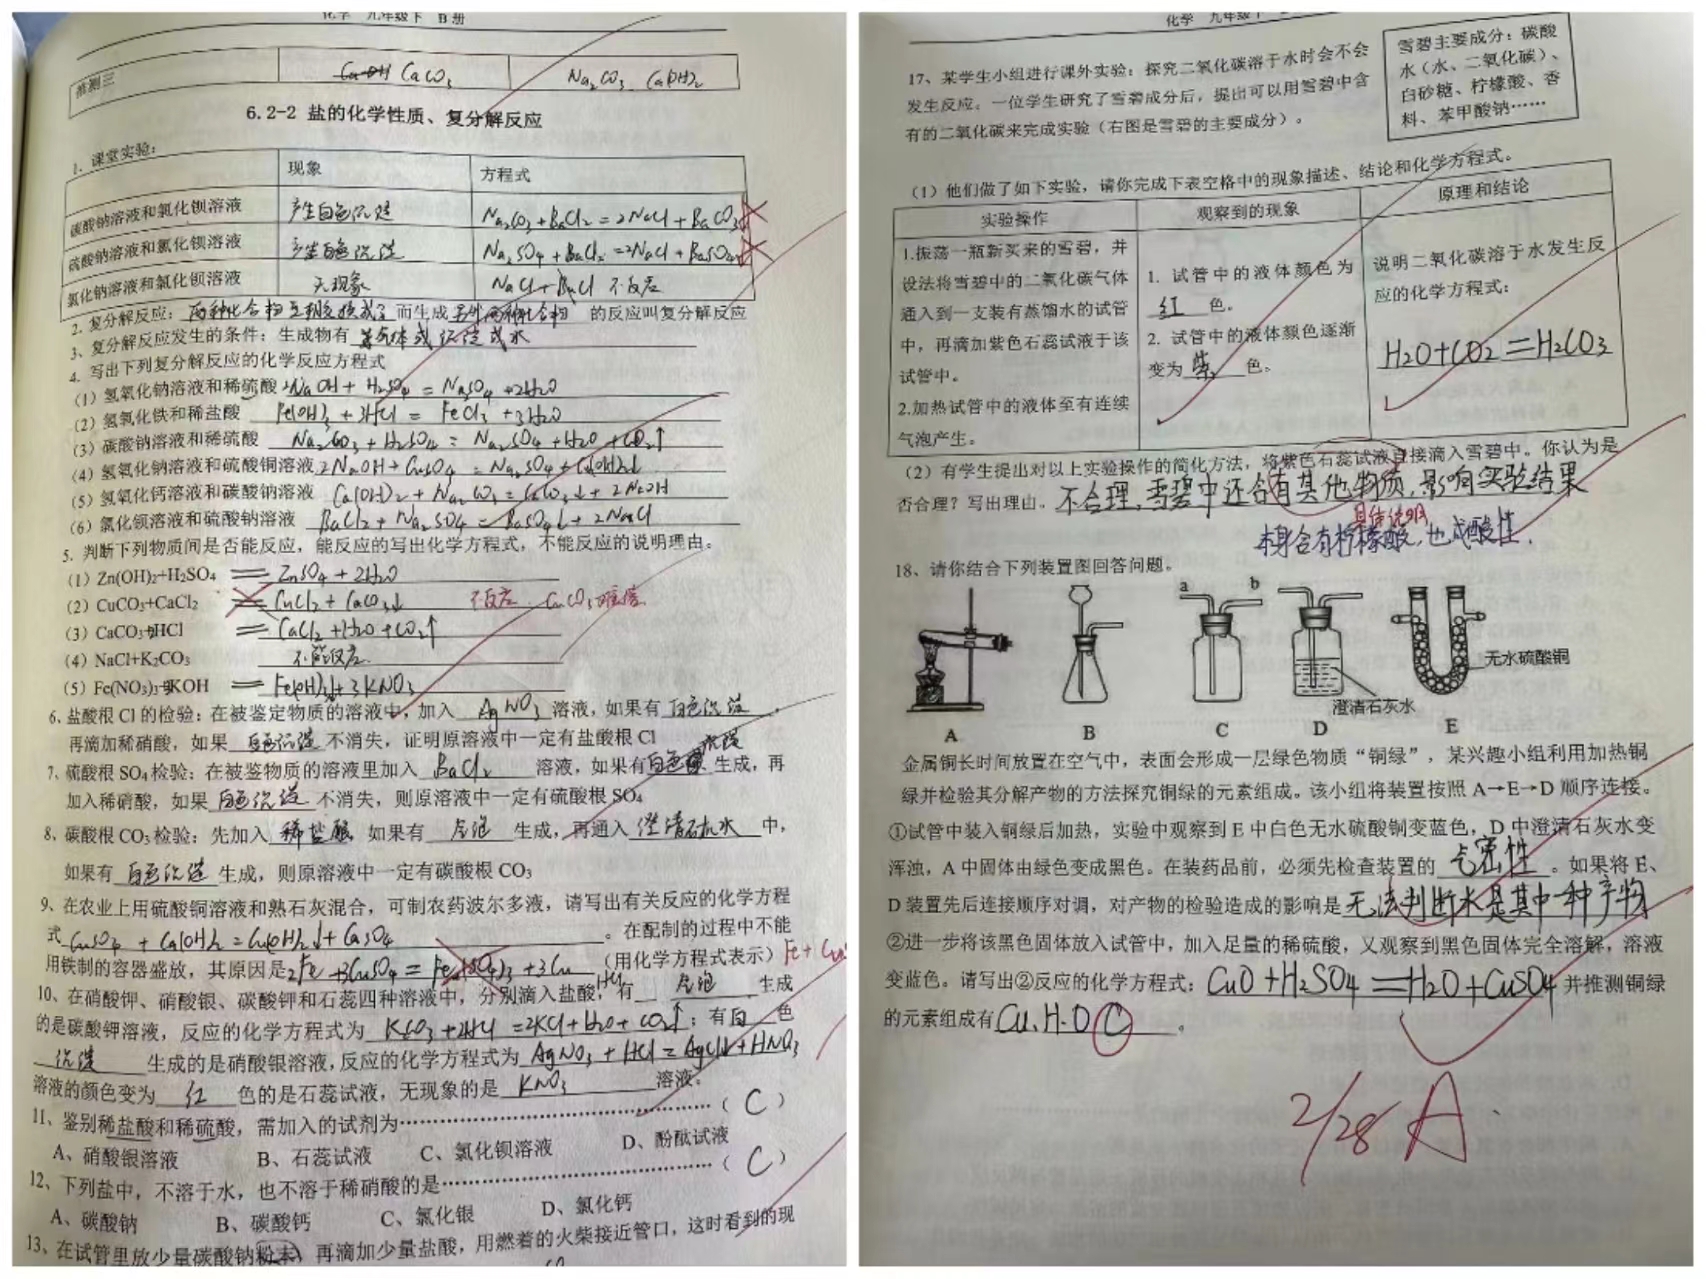 化学 九年级下 B册
推测三 CaOH CaCO₃ Na₂CO₃ Ca(OH)₂
6.2-2 盐的化学性质、复分解反应
1. 课堂实验:
现象 方程式
碳酸钠溶液和氯化钡溶液 产生白色沉淀 Na₂CO₃+BaCl₂=2NaCl+BaCO₃
硫酸钠溶液和氯化钡溶液 产生白色沉淀 Na₂SO₄+BaCl₂=2NaCl+BaSO₄
氯化钠溶液和氯化钡溶液 无现象 NaCl+BaCl 不反应
2. 复分解反应: 两种化合相互交换成分 而生成 另外两种化合物 的反应叫复分解反应
3、复分解反应发生的条件:生成物有 气体或沉淀或水
4. 写出下列复分解反应的化学反应方程式
(1)氢氧化钠溶液和稀硫酸 2NaOH+H₂SO₄=Na₂SO₄+2H₂O
(2)氢氧化铁和稀盐酸 Fe(OH)₃+3HCl=FeCl₃+3H₂O
(3)碳酸钠溶液和稀硫酸 Na₂CO₃+H₂SO₄=Na₂SO₄+H₂O+CO₂↑
(4)氢氧化钠溶液和硫酸铜溶液 2NaOH+CuSO₄=Na₂SO₄+Cu(OH)₂↓
(5)氢氧化钙溶液和碳酸钠溶液 Ca(OH)₂+Na₂CO₃=CaCO₃↓+2NaOH
(6)氯化钡溶液和硫酸钠溶液 BaCl₂+Na₂SO₄=BaSO₄↓+2NaCl
5. 判断下列物质间是否能反应,能反应的写出化学方程式,不能反应的说明理由。
(1)Zn(OH)₂+H₂SO₄ = ZnSO₄+2H₂O
(2)CuCO₃+CaCl₂ = CuCl₂+CaCO₃↓ 不反应 CuCO₃难溶
(3)CaCO₃+HCl = CaCl₂+H₂O+CO₂↑
(4)NaCl+K₂CO₃ 不能反应
(5)Fe(NO₃)₃+KOH = Fe(OH)₃↓+3KNO₃
6、盐酸根Cl的检验:在被鉴定物质的溶液中,加入 AgNO₃ 溶液,如果有 白色沉淀 ,
再滴加稀硝酸,如果 白色沉淀 不消失,证明原溶液中一定有盐酸根Cl
7、硫酸根SO₄检验:在被鉴物质的溶液里加入 BaCl₂ 溶液,如果有白色沉淀生成,再
加入稀硝酸,如果 白色沉淀 不消失,则原溶液中一定有硫酸根SO₄
8、碳酸根CO₃检验:先加入 稀盐酸,如果有 气泡 生成,再通入 澄清石灰水 中,
如果有 白色沉淀 生成,则原溶液中一定有碳酸根CO₃
9、在农业上用硫酸铜溶液和熟石灰混合,可制农药波尔多液,请写出有关反应的化学方程
式 CuSO₄+Ca(OH)₂=Cu(OH)₂↓+CaSO₄ 。在配制的过程中不能
用铁制的容器盛放,其原因是 2Fe+3CuSO₄=Fe₂(SO₄)₃+3Cu (用化学方程式表示) Fe+Cu
10、在硝酸钾、硝酸银、碳酸钾和石蕊四种溶液中,分别滴入盐酸,HCl 有 气泡 生成
的是碳酸钾溶液,反应的化学方程式为 K₂CO₃+2HCl=2KCl+H₂O+CO₂↑;有 白 色
沉淀 生成的是硝酸银溶液,反应的化学方程式为 AgNO₃+HCl=AgCl↓+HNO₃
溶液的颜色变为 红 色的是石蕊试液,无现象的是 KNO₃ 溶液。
11、鉴别稀盐酸和稀硫酸,需加入的试剂为……………………………………( C )
A、硝酸银溶液 B、石蕊试液 C、氯化钡溶液 D、酚酞试液
12、下列盐中,不溶于水,也不溶于稀硝酸的是……………………………………( C )
A、碳酸钠 B、碳酸钙 C、氯化银 D、氯化钙
13、在试管里放少量碳酸钠粉末,再滴加少量盐酸,用燃着的火柴接近管口,这时看到的现
化学 九年级下
17、某学生小组进行课外实验:探究二氧化碳溶于水时会不会
发生反应。一位学生研究了雪碧成分后,提出可以用雪碧中含
有的二氧化碳来完成实验(右图是雪碧的主要成分)。
雪碧主要成分:碳酸
水(水、二氧化碳)、
白砂糖、柠檬酸、香
料、苯甲酸钠……
(1)他们做了如下实验,请你完成下表空格中的现象描述、结论和化学方程式。
实验操作 观察到的现象 原理和结论
1.振荡一瓶新买来的雪碧,并
设法将雪碧中的二氧化碳气体
通入到一支装有蒸馏水的试管
中,再滴加紫色石蕊试液于该
试管中。
2.加热试管中的液体至有连续
气泡产生。
1. 试管中的液体颜色为
红 色。
2. 试管中的液体颜色逐渐
变为 紫 色。
说明二氧化碳溶于水发生反
应的化学方程式:
H₂O+CO₂=H₂CO₃
(2)有学生提出对以上实验操作的简化方法,将紫色石蕊试液直接滴入雪碧中。你认为是
否合理?写出理由。不合理,雪碧中还含有其他物质,影响实验结果
具体说明
本身含有柠檬酸,也成酸性.
18、请你结合下列装置图回答问题。
a b
无水硫酸铜
澄清石灰水
A B C D E
金属铜长时间放置在空气中,表面会形成一层绿色物质“铜绿”,某兴趣小组利用加热铜
绿并检验其分解产物的方法探究铜绿的元素组成。该小组将装置按照A→E→D顺序连接。
①试管中装入铜绿后加热,实验中观察到E中白色无水硫酸铜变蓝色,D中澄清石灰水变
浑浊,A中固体由绿色变成黑色。在装药品前,必须先检查装置的 气密性 。如果将E、
D装置先后连接顺序对调,对产物的检验造成的影响是 无法判断水是其中一种产物
②进一步将该黑色固体放入试管中,加入足量的稀硫酸,又观察到黑色固体完全溶解,溶液
变蓝色。请写出②反应的化学方程式:CuO+H₂SO₄=H₂O+CuSO₄ 并推测铜绿
的元素组成有 Cu.H.O C 。
2/28 A